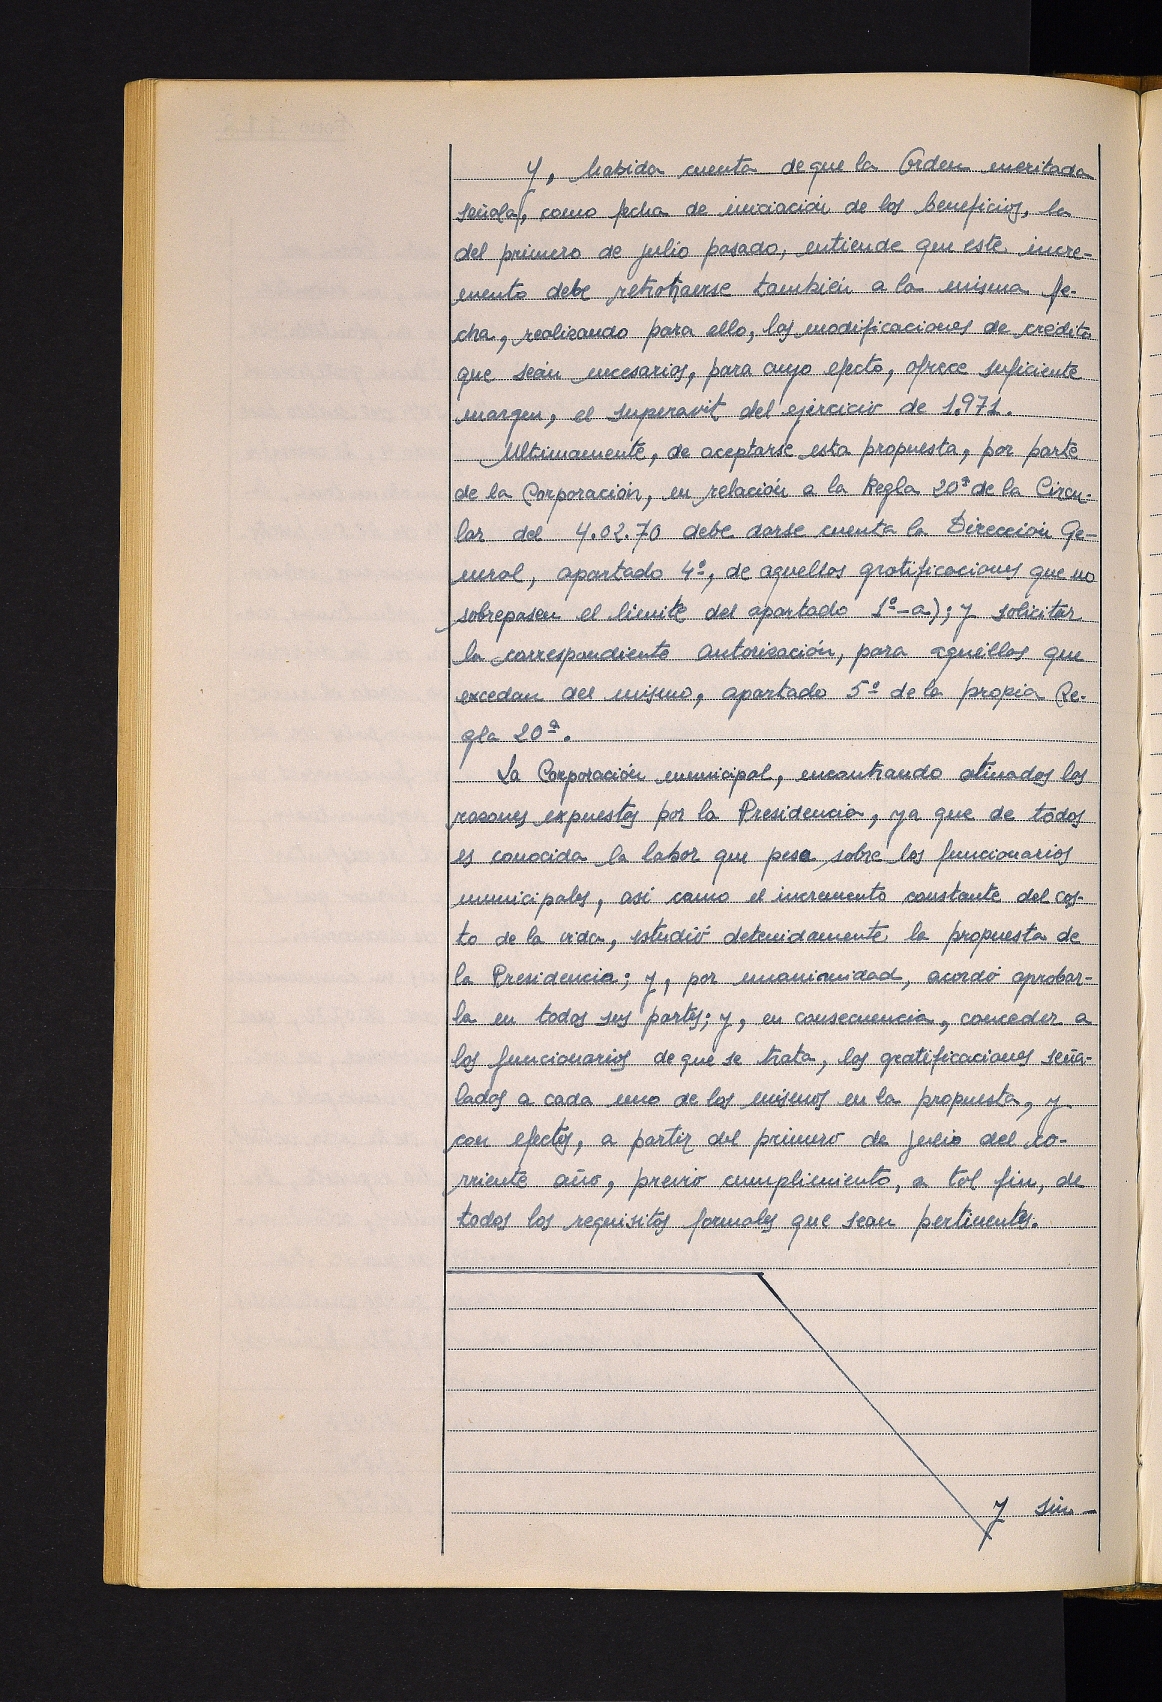 Y, habida cuenta de que la Orden meritada
señala, como fecha de iniciación de los beneficios, la
del primero de julio pasado, entiende que este incre-
mento debe retrotraerse también a la misma fe-
cha, realizando para ello, las modificaciones de crédito
que sean necesarias, para cuyo efecto, ofrece suficiente
margen, el superavit del ejercicio de 1.971.
Ultimamente, de aceptarse esta propuesta, por parte
de la Corporación, en relación a la Regla 20ª de la Circu-
lar del 4.02.70 debe darse cuenta la Dirección Ge-
neral, apartado 4º, de aquellas gratificaciones que no
sobrepasen el límite del apartado 1º-a); y solicitar
la correspondiente autorización, para aquéllas que
excedan del mismo, apartado 5º de la propia Re-
gla 20ª.
La Corporación municipal, encontrando atinadas las
razones expuestas por la Presidencia, ya que de todos
es conocida la labor que pesa sobre los funcionarios
municipales, así como el incremento constante del cos-
to de la vida, estudió detenidamente la propuesta de
la Presidencia; y, por unanimidad, acordó aprobar-
la en todas sus partes; y, en consecuencia, conceder a
los funcionarios de que se trata, las gratificaciones seña-
ladas a cada uno de los mismos en la propuesta, y
con efectos, a partir del primero de julio del co-
rriente año, previo cumplimiento, a tal fin, de
todos los requisitos formales que sean pertinentes.
Y sin-